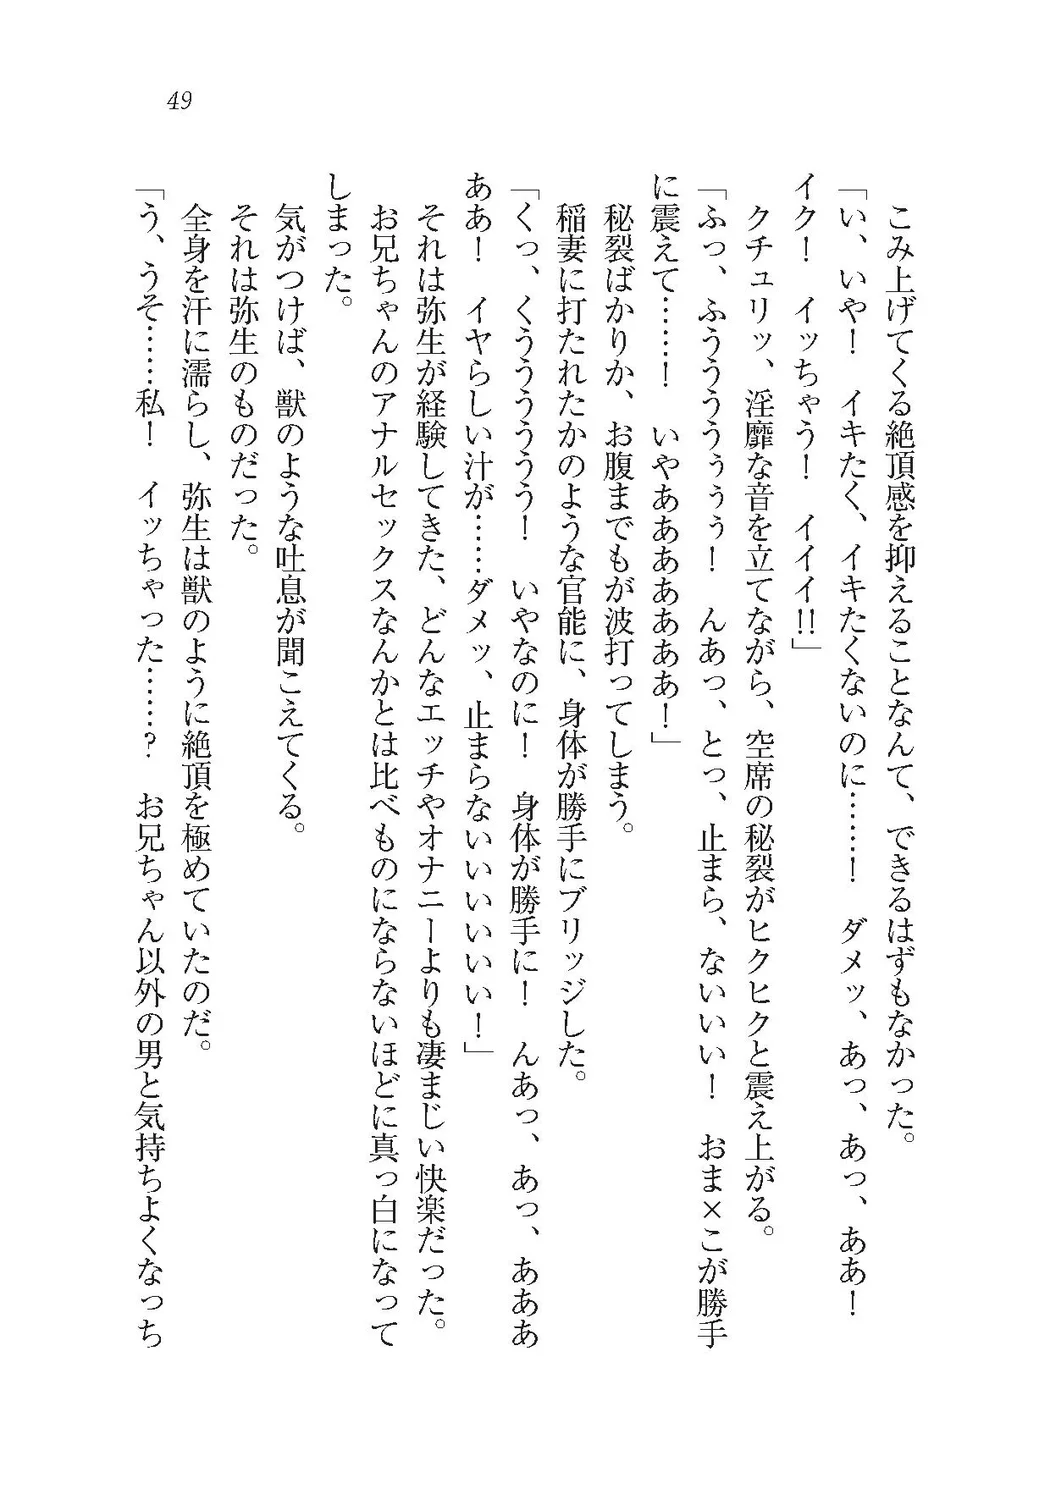 49
こみ上げてくる絶頂感を抑えることなんて、できるはずもなかった。
「い、いや！　イキたく、イキたくないのに……！　ダメッ、あっ、あっ、ああ！
イク！　イッちゃう！　イイイ!!」
クチュリッ、淫靡な音を立てながら、空席の秘裂がヒクヒクと震え上がる。
「ふっ、ふうううぅぅぅ！　んあっ、とっ、止まら、ないいい！　おま×こが勝手
に震えて……！　いやああああああ！」
秘裂ばかりか、お腹までもが波打ってしまう。
稲妻に打たれたかのような官能に、身体が勝手にブリッジした。
「くっ、くうううううう！　いやなのに！　身体が勝手に！　んあっ、あっ、あああ
ああ！　イヤらしい汁が……ダメッ、止まらないいいいいい！」
それは弥生が経験してきた、どんなエッチやオナニーよりも凄まじい快楽だった。
お兄ちゃんのアナルセックスなんかとは比べものにならないほどに真っ白になって
しまった。
気がつけば、獣のような吐息が聞こえてくる。
それは弥生のものだった。
全身を汗に濡らし、弥生は獣のように絶頂を極めていたのだ。
「う、うそ……私！　イッちゃった……？　お兄ちゃん以外の男と気持ちよくなっち